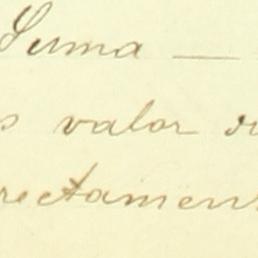 Suma —
s valor
rectamen